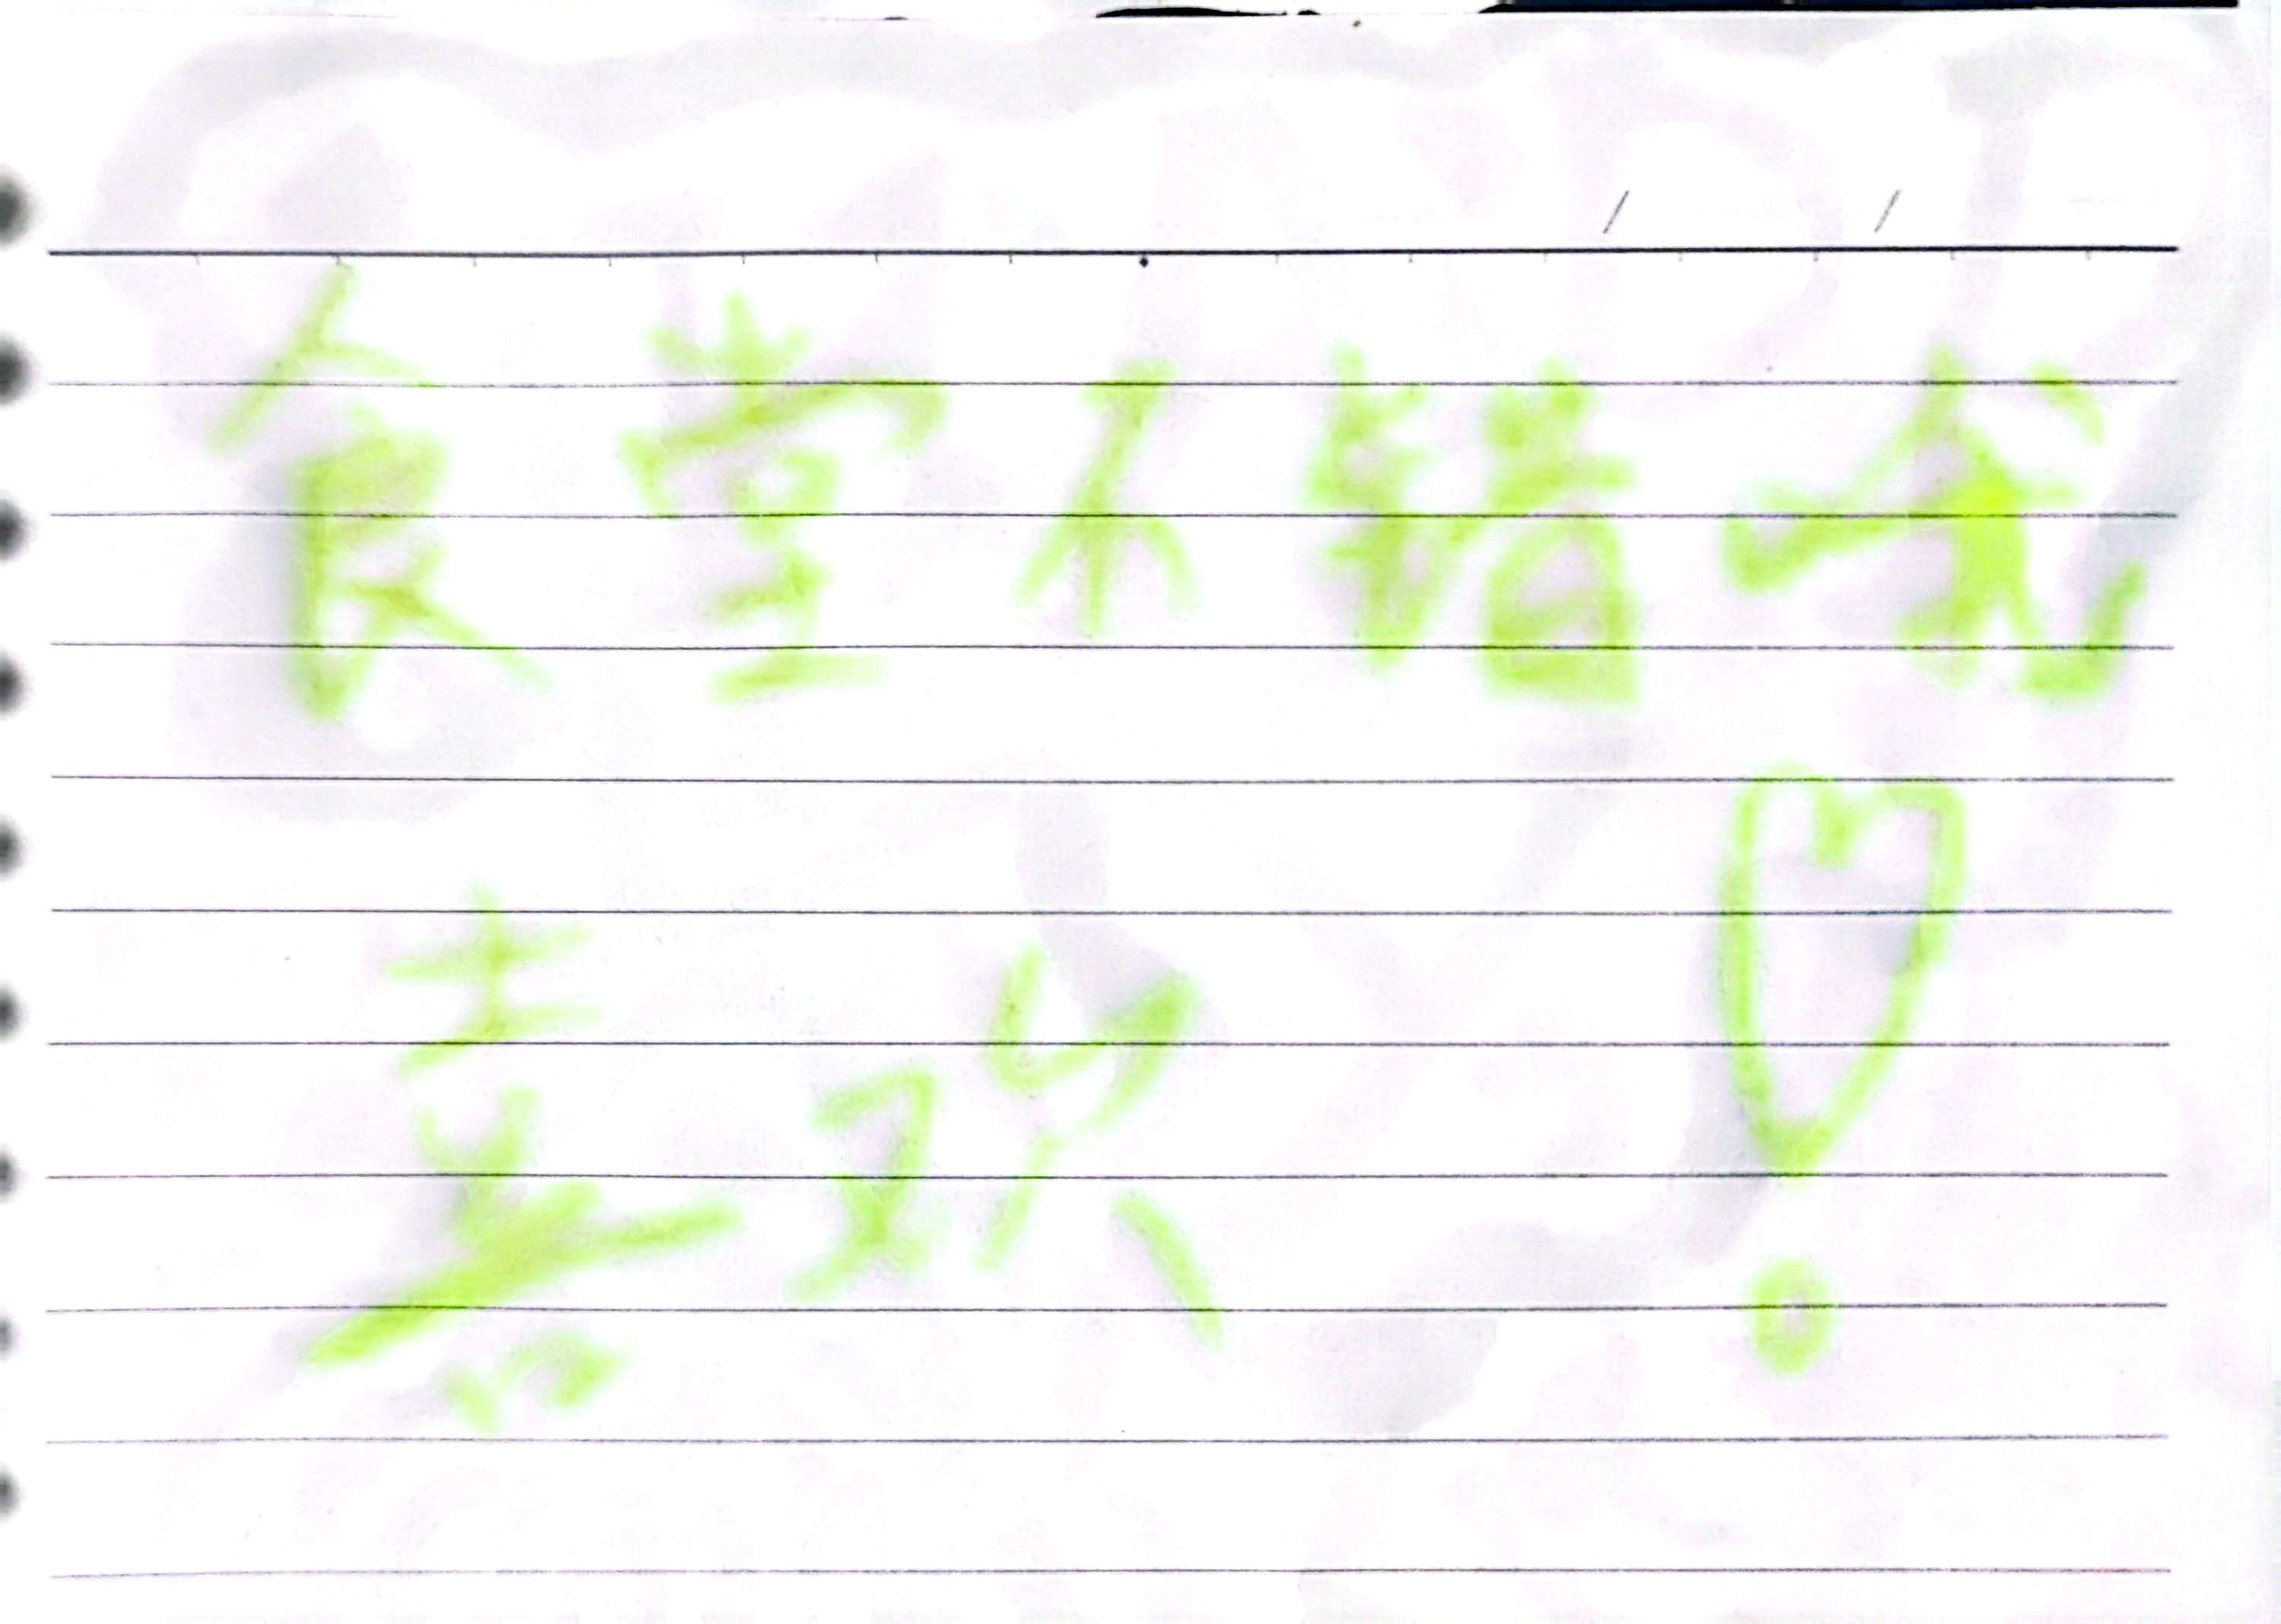 食堂不错我
喜欢！